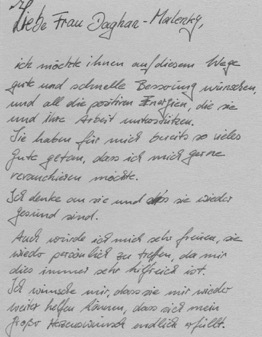 Liebe Frau Daghan-Malenky,
ich möchte ihnen auf diesem Wege
gute und schnelle Besserung wünschen,
und all die positiven Energien, die sie
und ihre Arbeit unterstützen.
Sie haben für mich bereits so vieles
Gute getan, dass ich mich gerne
revanchieren möchte.
Ich denke an sie und dass sie wieder
gesund sind.
Auch würde ich mich sehr freuen, sie
wieder persönlich zu treffen, da mir
dies immer sehr hilfreich ist.
Ich wünsche mir, dass sie mir wieder
weiter helfen können, dass sich mein
großer Herzenswunsch endlich erfüllt.